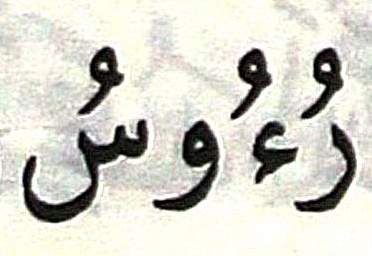 رُءُوسُ